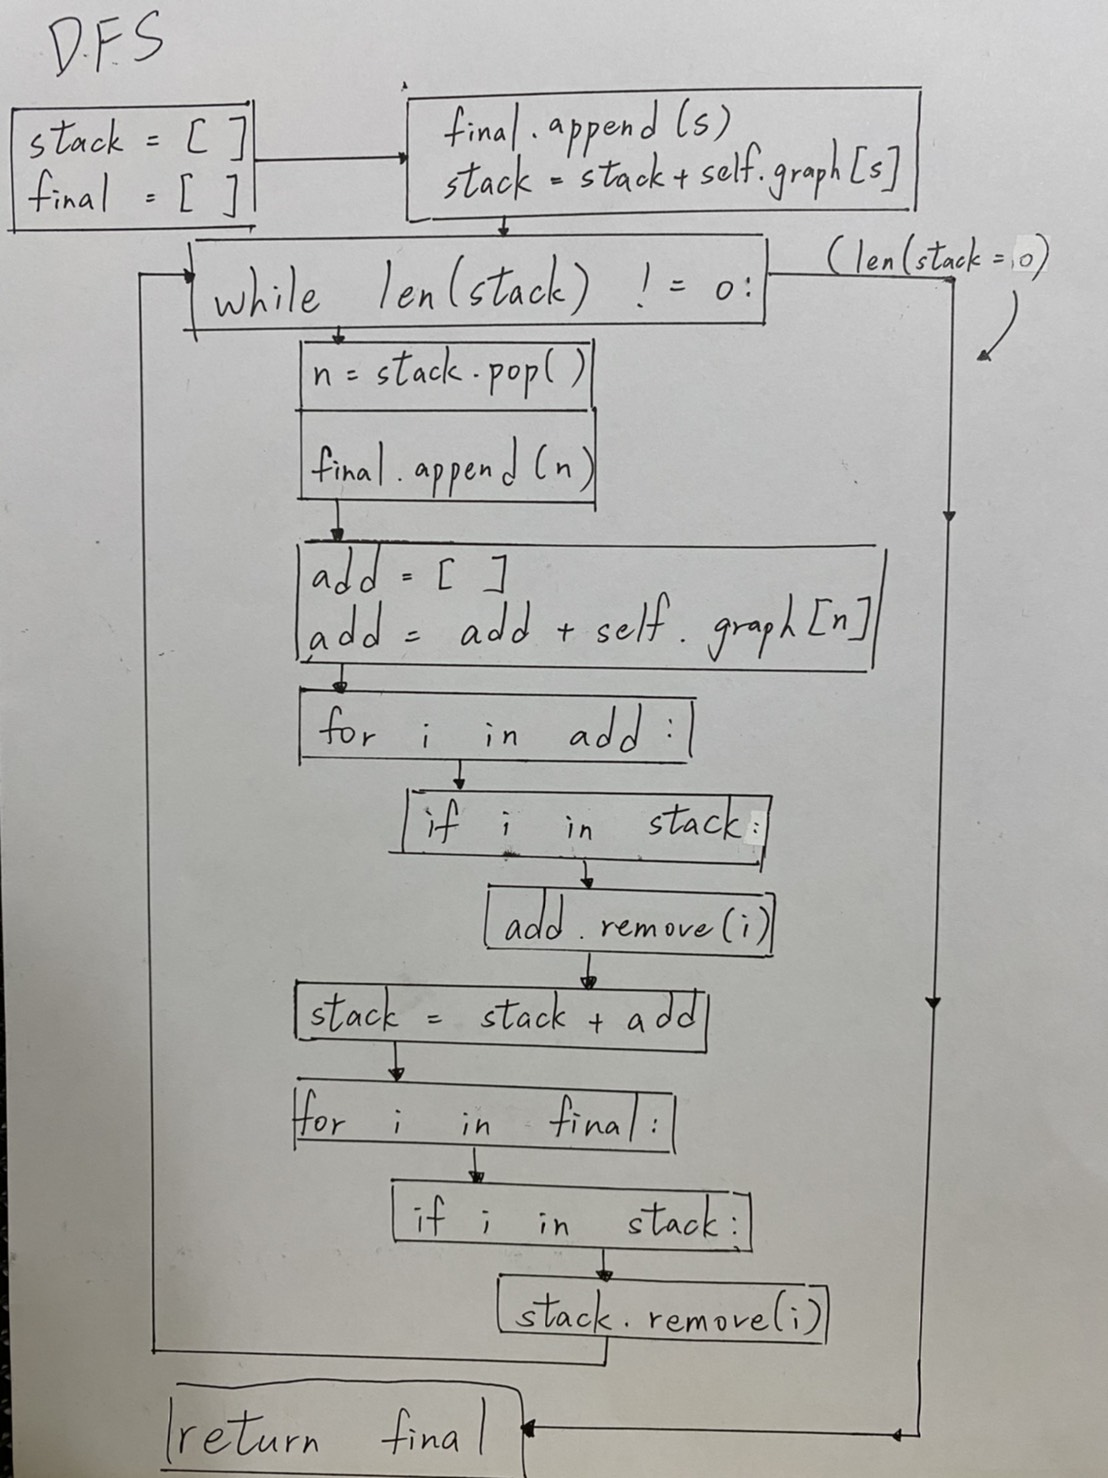 D.F.S
stack = [ ]
final = [ ]
final.append(s)
stack = stack + self.graph[s]
while len(stack) != 0:
(len(stack = 0)
n = stack.pop()
final.append(n)
add = [ ]
add = add + self.graph[n]
for i in add:
if i in stack:
add.remove(i)
stack = stack + add
for i in final:
if i in stack:
stack.remove(i)
return final